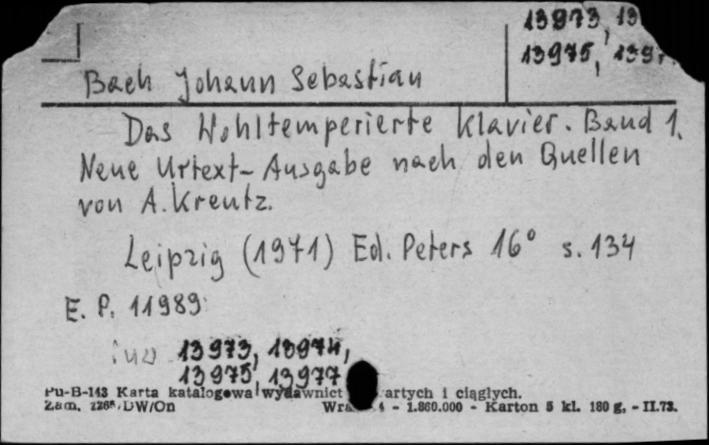 13973, 13
13975, 139
Bach Johann Sebastian
Das Wohltemperierte Klavier. Band 1.
Neue Urtext-Ausgabe nach den Quellen
von A. Kreutz.
Leipzig (1971) Ed. Peters 16° s. 134
E. P. 11989
inw 13973, 13974,
13975 13977
Pu-B-143 Karta katalogowa wydawnict artych i ciągłych.
Zam. DW/On 4 - 1.860.000 - Karton 5 kl. 180 g, - II.73.